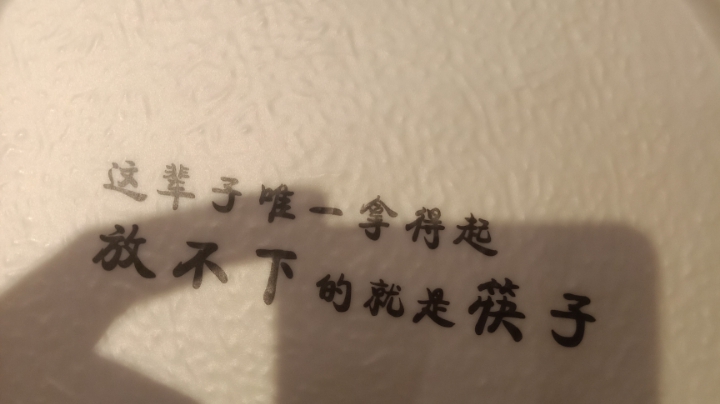 这辈子唯一拿得起
放不下的就是筷子